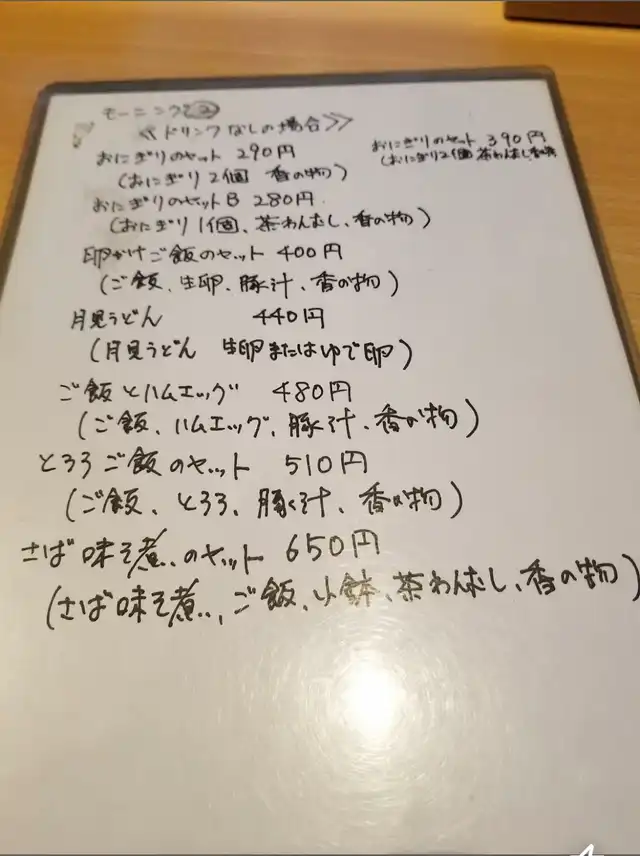 モーニング②
≪ドリンクなしの場合≫
おにぎりのセット 290円
(おにぎり 2個 香の物)
おにぎりのセット 390円
(おにぎり2個 茶わんむし 香の物
おにぎりのセットB 280円
(おにぎり 1個、茶わんむし、香の物)
卵かけご飯のセット 400円
(ご飯、生卵、豚汁、香の物)
月見うどん 440円
(月見うどん 生卵またはゆで卵)
ご飯とハムエッグ 480円
(ご飯、ハムエッグ、豚汁、香の物)
とろろご飯のセット 510円
(ご飯、とろろ、豚汁、香の物)
さば味そ煮のセット 650円
(さば味そ煮、ご飯、小鉢、茶わんむし、香の物)